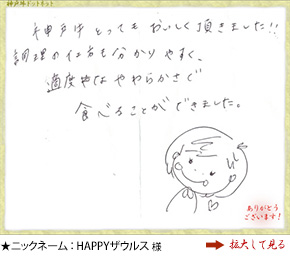 神戸牛ドットネット
神戸牛とってもおいしく頂きました!!
調理の仕方も分かりやすく、
適度なやわらかさで
食べることができました。
ありがとう
ございます!
★ニックネーム:HAPPYザウルス 様
拡大して見る